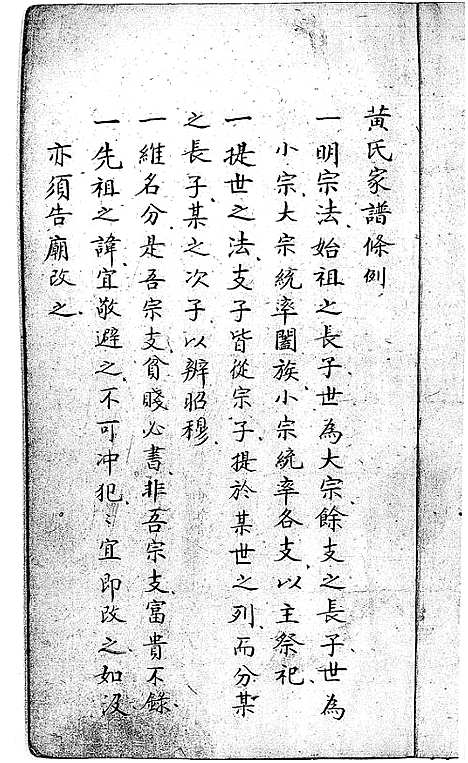 黃氏家譜條例
一明宗法始祖之長子世為大宗餘支之長子世為
小宗大宗統率闔族小宗統率各支以主祭祀
一提世之法支子皆從宗子提於某世之列而分某
之長子某之次子以辨昭穆
一維名分是吾宗支貧賤必書非吾宗支富貴不錄
一先祖之諱宜敬避之不可冲犯〻宜即改之如沒
亦須告廟改之